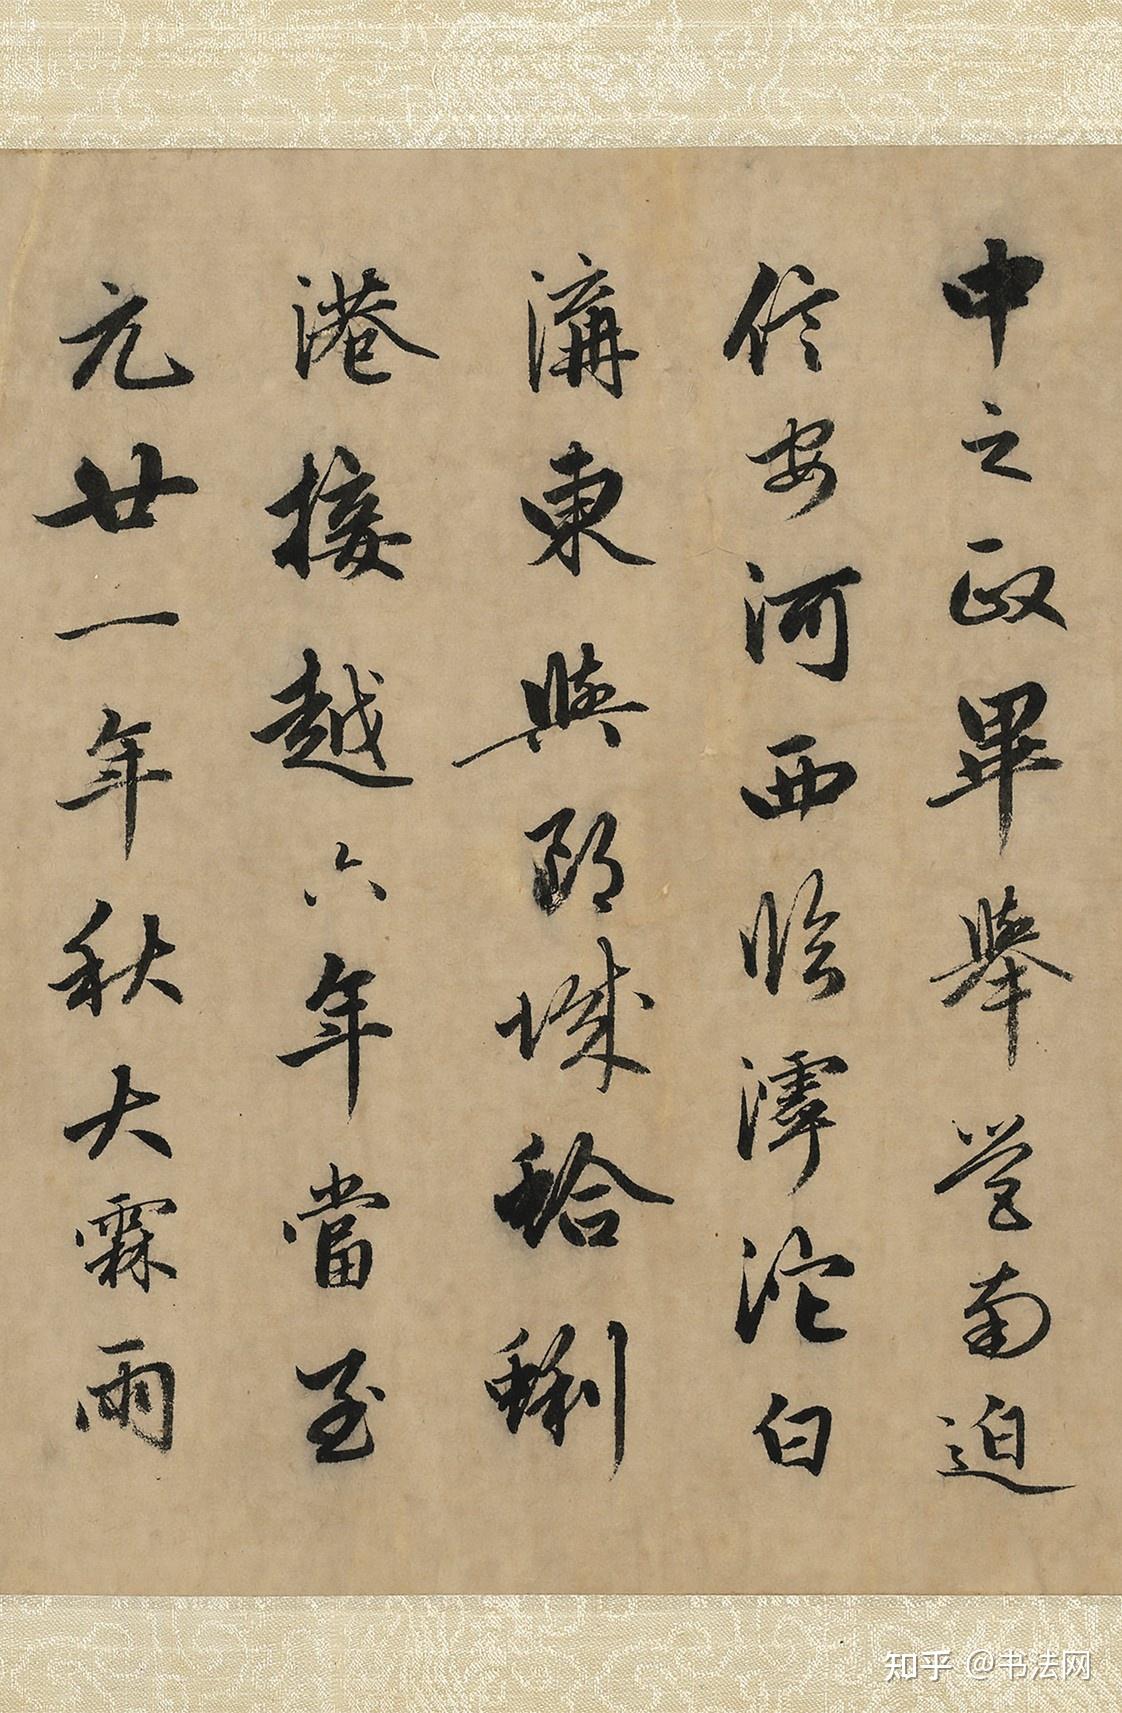 中之政畢舉營南迫
信安河西臨滹沱白
溝東與鄚城蛤蜊
港接越六年當至
元廿一年秋大霖雨
知乎 @书法网